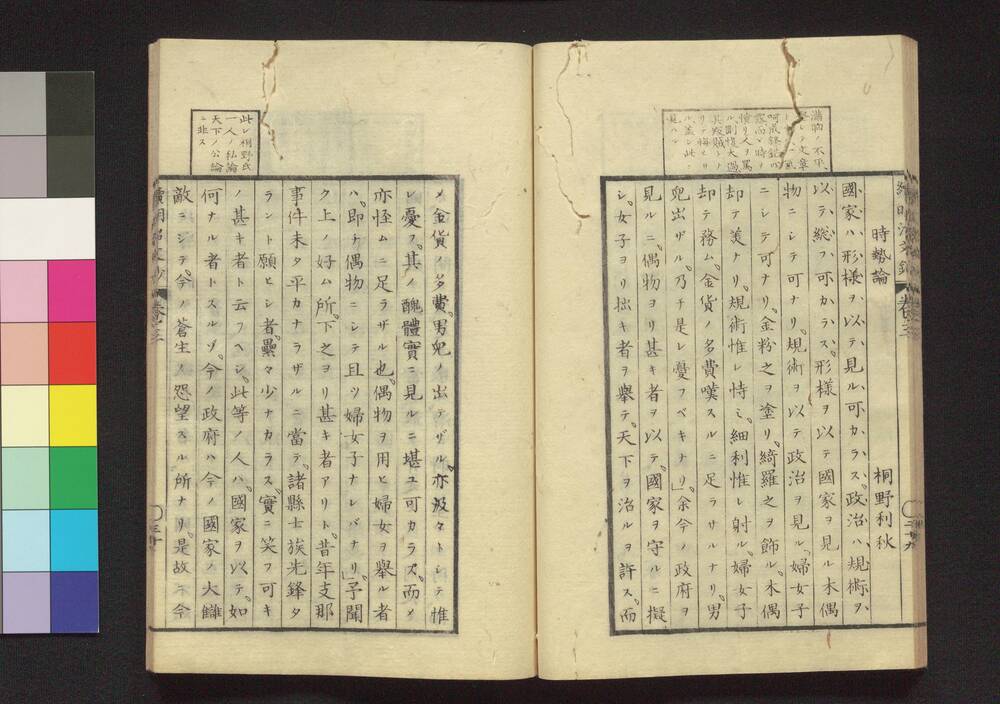 時勢論
桐野利秋
國家ハ形様ヲ以テ見ル可カラス政治ハ規術ヲ
以テ総フ可カラス形様ヲ以テ國家ヲ見ル木偶
物ニシテ可ナリ規術ヲ以テ政治ヲ見ル婦女子
ニシテ可ナリ金粉之ヲ塗リ綺羅之ヲ飾ル木偶
却テ美ナリ規術惟レ恃ミ細利惟レ射ル婦女子
却テ務ム金貨ノ多費嘆スルニ足ラサルナリ男
兒出ザル乃チ是レ憂フベキナリ」余今ノ政府ヲ
見ルニ偶物ヨリ甚キ者ヲ以テ國家ヲ守ルニ擬
シ女子ヨリ拙キ者ヲ舉テ天下ヲ治ルヲ許ス而
卷之三
二十九
メ金貨ノ多費男兒ノ出テザル亦汲々トシテ惟
レ憂フ其ノ醜體實ニ見ルニ堪ユ可カラズ而メ
亦怪ムニ足ラザル也偶物ヲ用ヒ婦女ヲ舉ル者
ハ即ナ偶物ニシテ且ツ婦女子ナレバナリ」予聞
ク上ノ好ム所下之ヨリ甚キ者アリト昔年支那
事件未タ平カナラザルニ當テ諸縣士族先鋒タ
ラント願ヒシ者纍々少ナカラス實ニ笑フ可キ
ノ甚キ者ト云フヘシ此等ノ人ハ國家ヲ以テ如
何ナル者トスルゾ今ノ政府ハ今ノ國家ノ大讎
敵ニシテ今ノ蒼生ノ怨望スル所ナリ是故ニ今
此レ桐野氏
一人ノ私論
天下ノ公論
ニ非ス
卷之三
三十